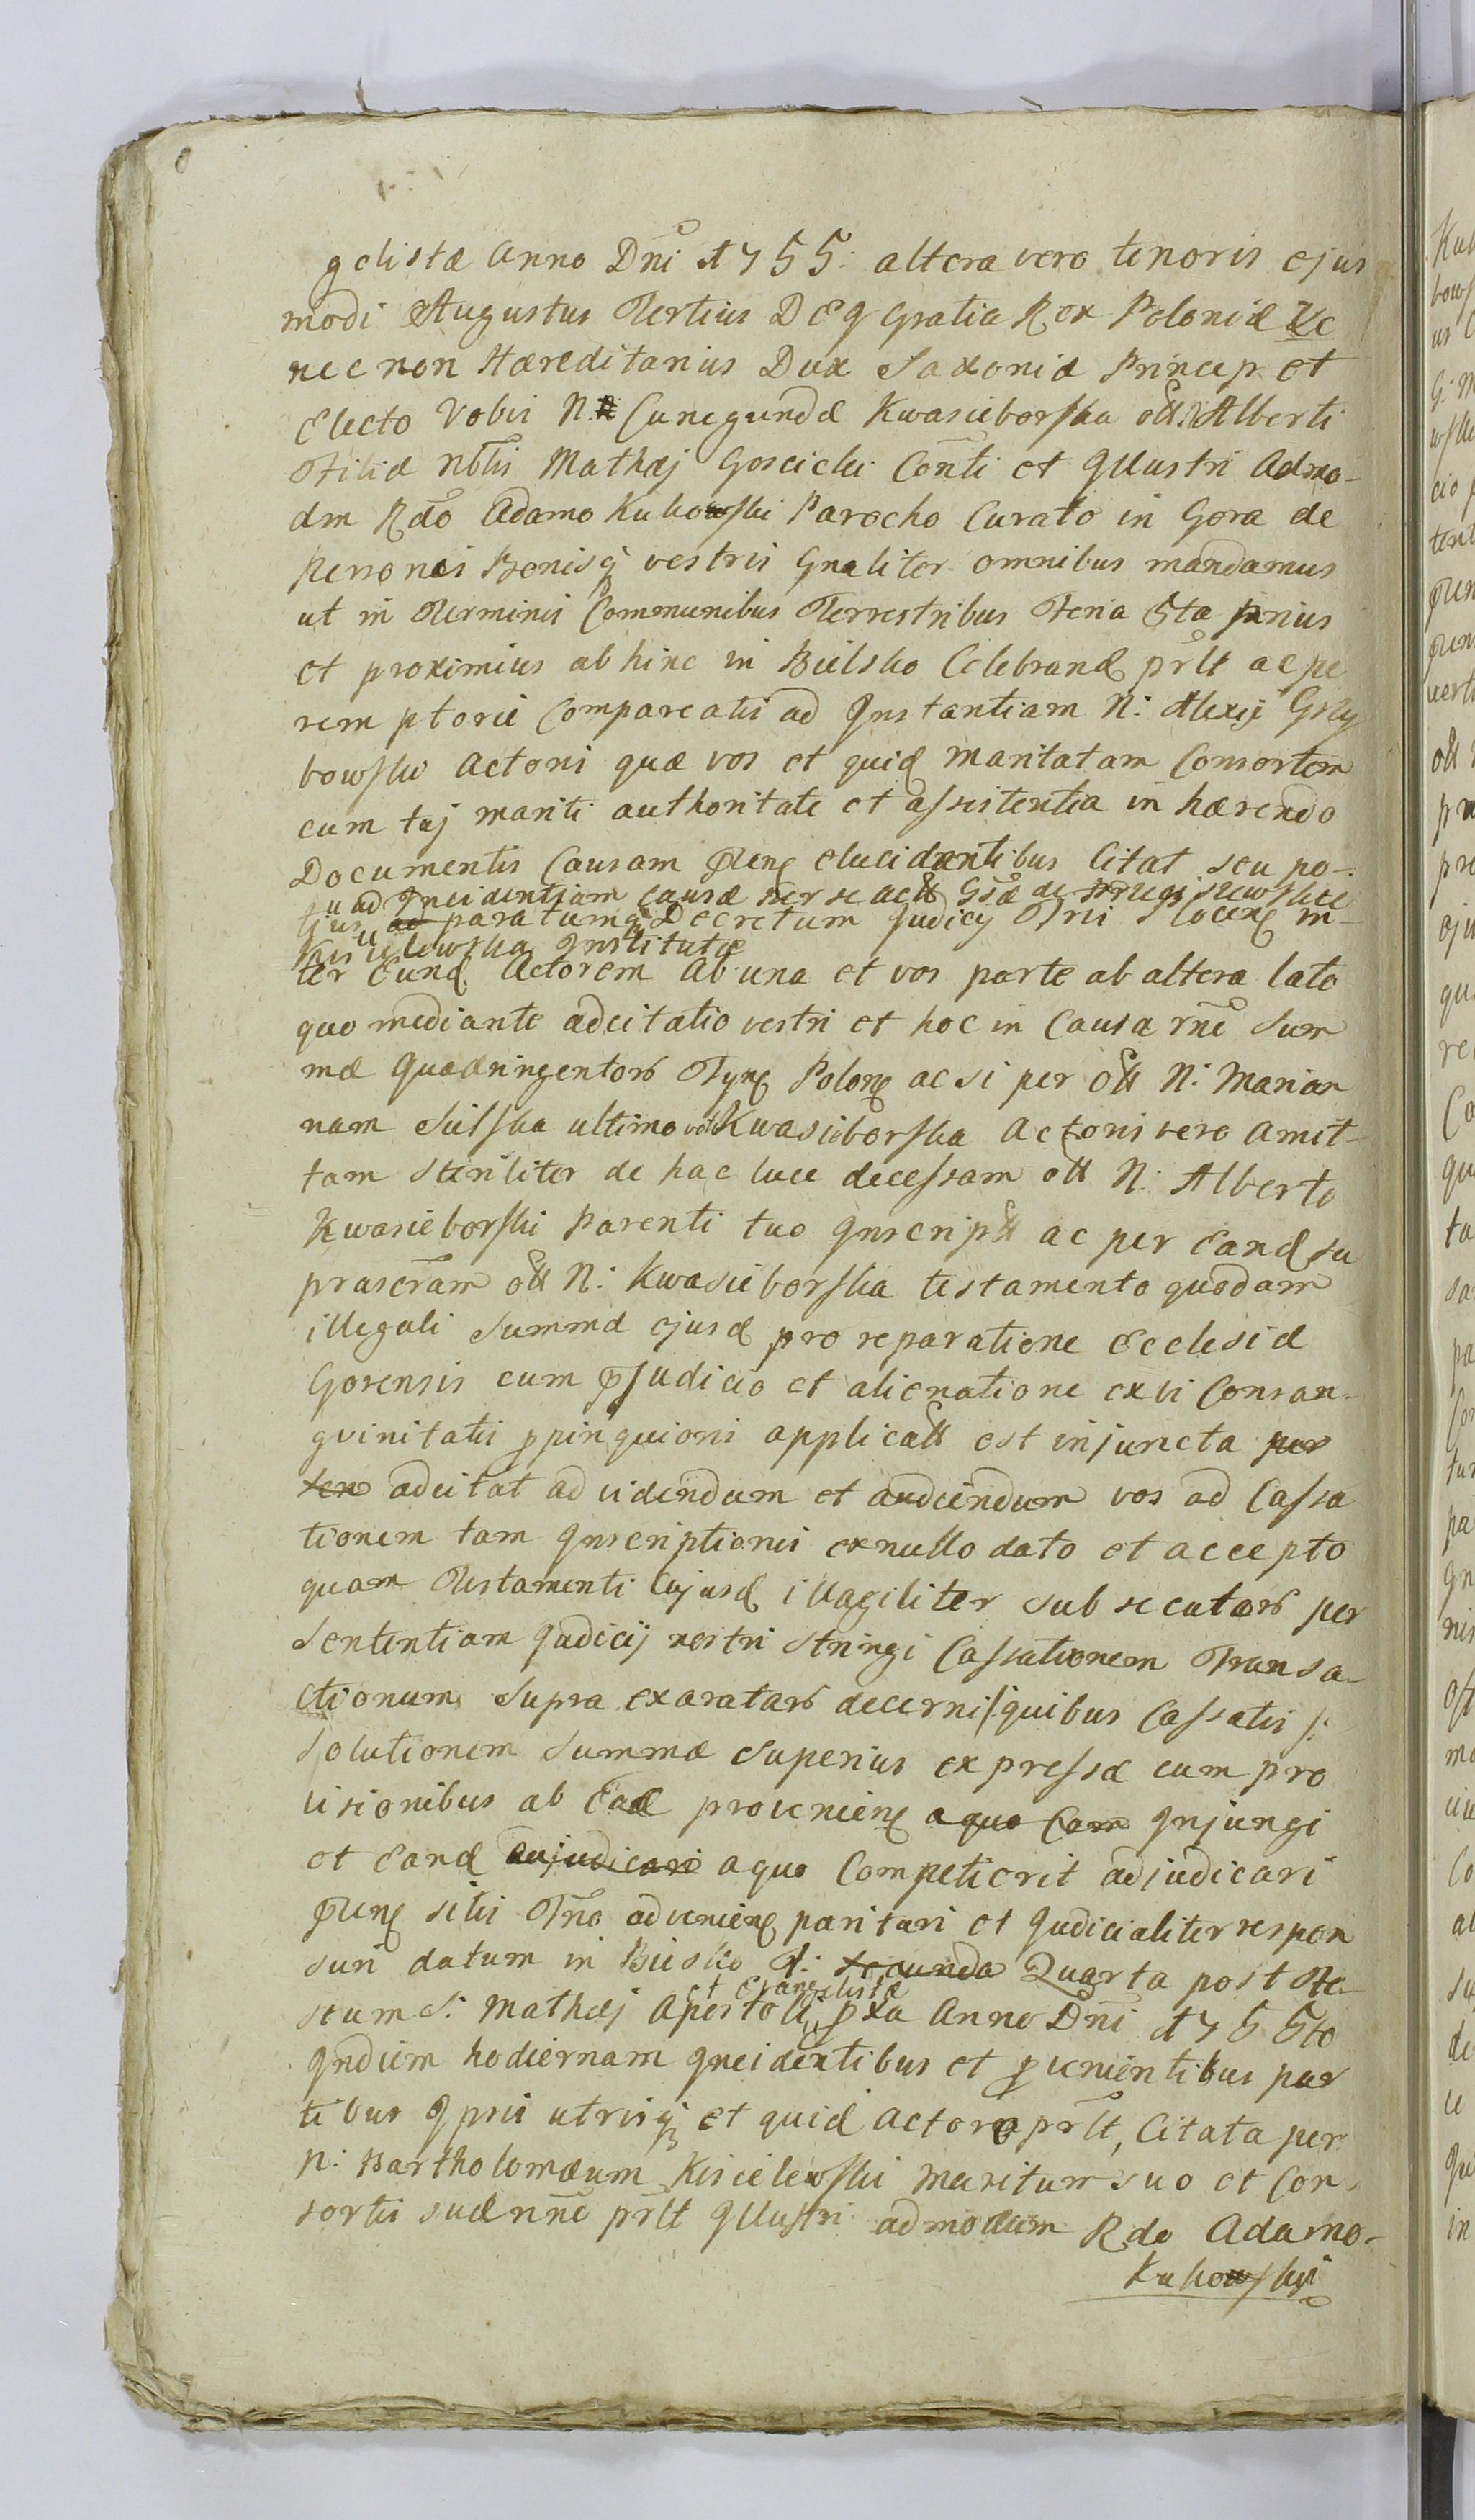 gelistæ Anno Dni 1755. altera vero tenoris ejus
modi Augustus Tertius DEI Gratia Rex Poloniæ &c
nec non Hæreditarius Dux Saxoniæ Princep et
Electo Vobis N. Cunegundæ Kwasieborska olt. N. Alberti
Filiæ Nblis Mathæj Goscicki Conti et Illustri Admo-
dm Rdo Adamo Kukowski Parocho Curato in Gora de
Personis Bonisq vestris Gnaliter omnibus mandamus
ut in Terminis Communibus Terrestribus Feria 5ta prius
et proximius abhinc in Bielsko Celebrand prlt ac pe
remptorie Compareatis ad Instantiam N: Alexij Grzy
bowski Actoris quæ vos et quid maritatam Consortem
cum tuj mariti authoritate et assistentia in hærendo
Documentis Causam elucidantibus Citat seu po-
ju ad Incidentiam Causæ
tius ad paratumq Decretum Judicij
Kisielewska Institutæ
ter Eund Actorem ab una et vos parte ab altera lato
quo mediante adcitatio vestri et hoc in Causa rne Sum
mæ Quadringentor Polon ac si per olt N: Marian
nam ultimo voto Kwasieborska Actoris vero Amit-
tam Steriliter de hac luce decessam olt N: Alberto
Kwasieborski Parenti tuo Inscript ac per Eand su
prascram olt N: Kwasieborska testamento quodam
illegali Summæ ejusd pro reparatione Ecclesiæ
Gorensis cum pJudicio et alienatione ex vi Consan-
gvinitatis ppinquioris applicatt est injuncta per
ten adcitat ad videndum et audiendum vos ad Cassa
tionem tam Inscriptionis ex nullo dato et accepto
quam Testamenti Cujusd illagiliter subsecutor per
Sententiam Judicij nostri Stringi Cassationem Transa-
ctionum supra exaratar decerni /: quibus Cassatis /:
Solutionem Summæ superius expressæ cum pro
visionibus ab Ead provenien a quo Com Injungi
et Eand adjudicari a quo Competierit adjudicari
sitis Tno advenien parituri et Judicialiter respon
suri datum in Bielsko f: secunda Quarta post Fe-
et Evangelistæ
stum S: Mathæj Apostoli pxa Anno Dni 1755to
Indiem hodiernam Incidentibus et pvenientibus par
tibus Ipsis utrisq et quid Actore prlt, Citata per
N: Bartholomæum Kisielewski Maritum suo et Con-
sortis suæ nne prlt Illustri admodum Rdo Adamo-
Kukowski